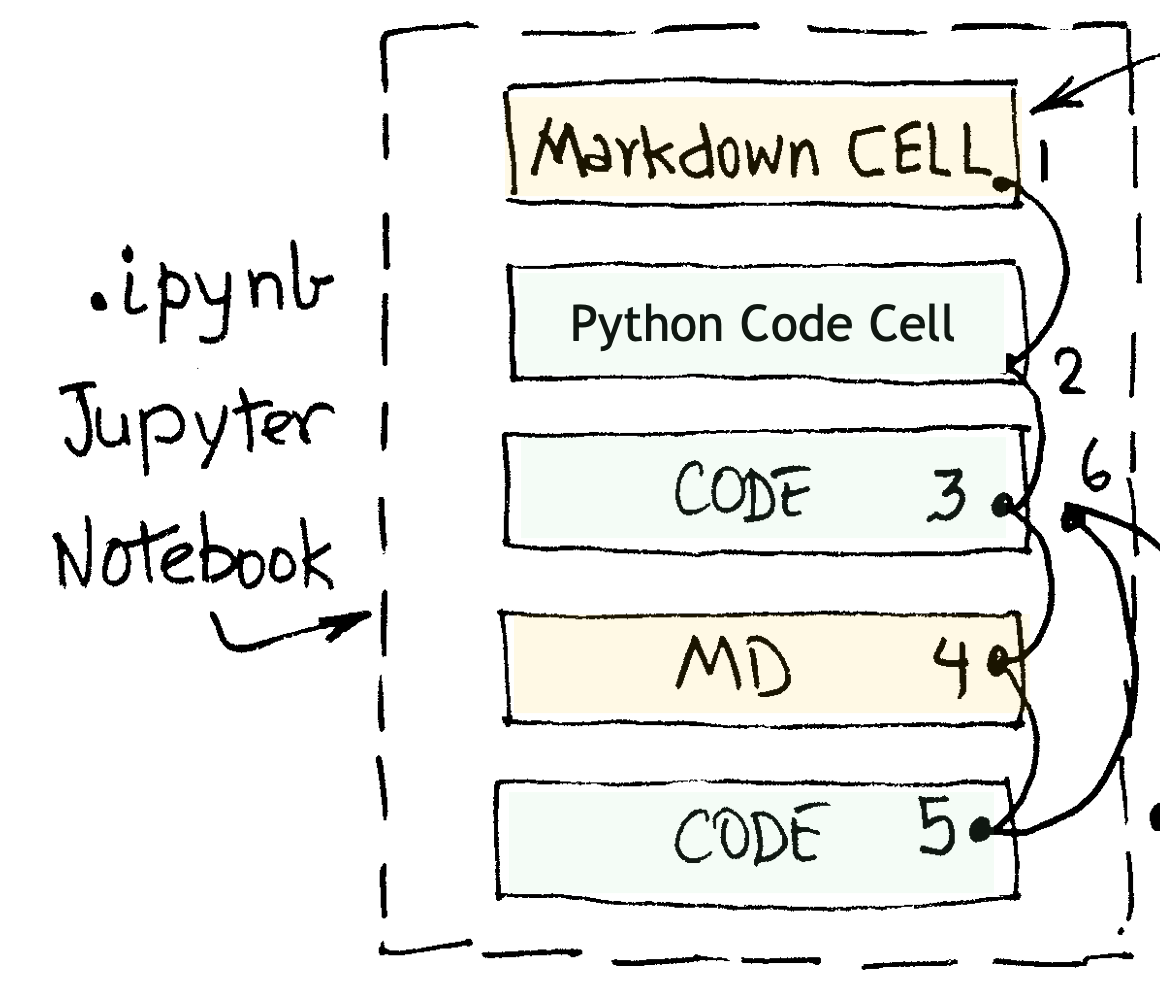 .ipynb
Jupyter
Notebook
Markdown CELL 1
Python Code Cell
2
CODE 3
6
MD 4
CODE 5